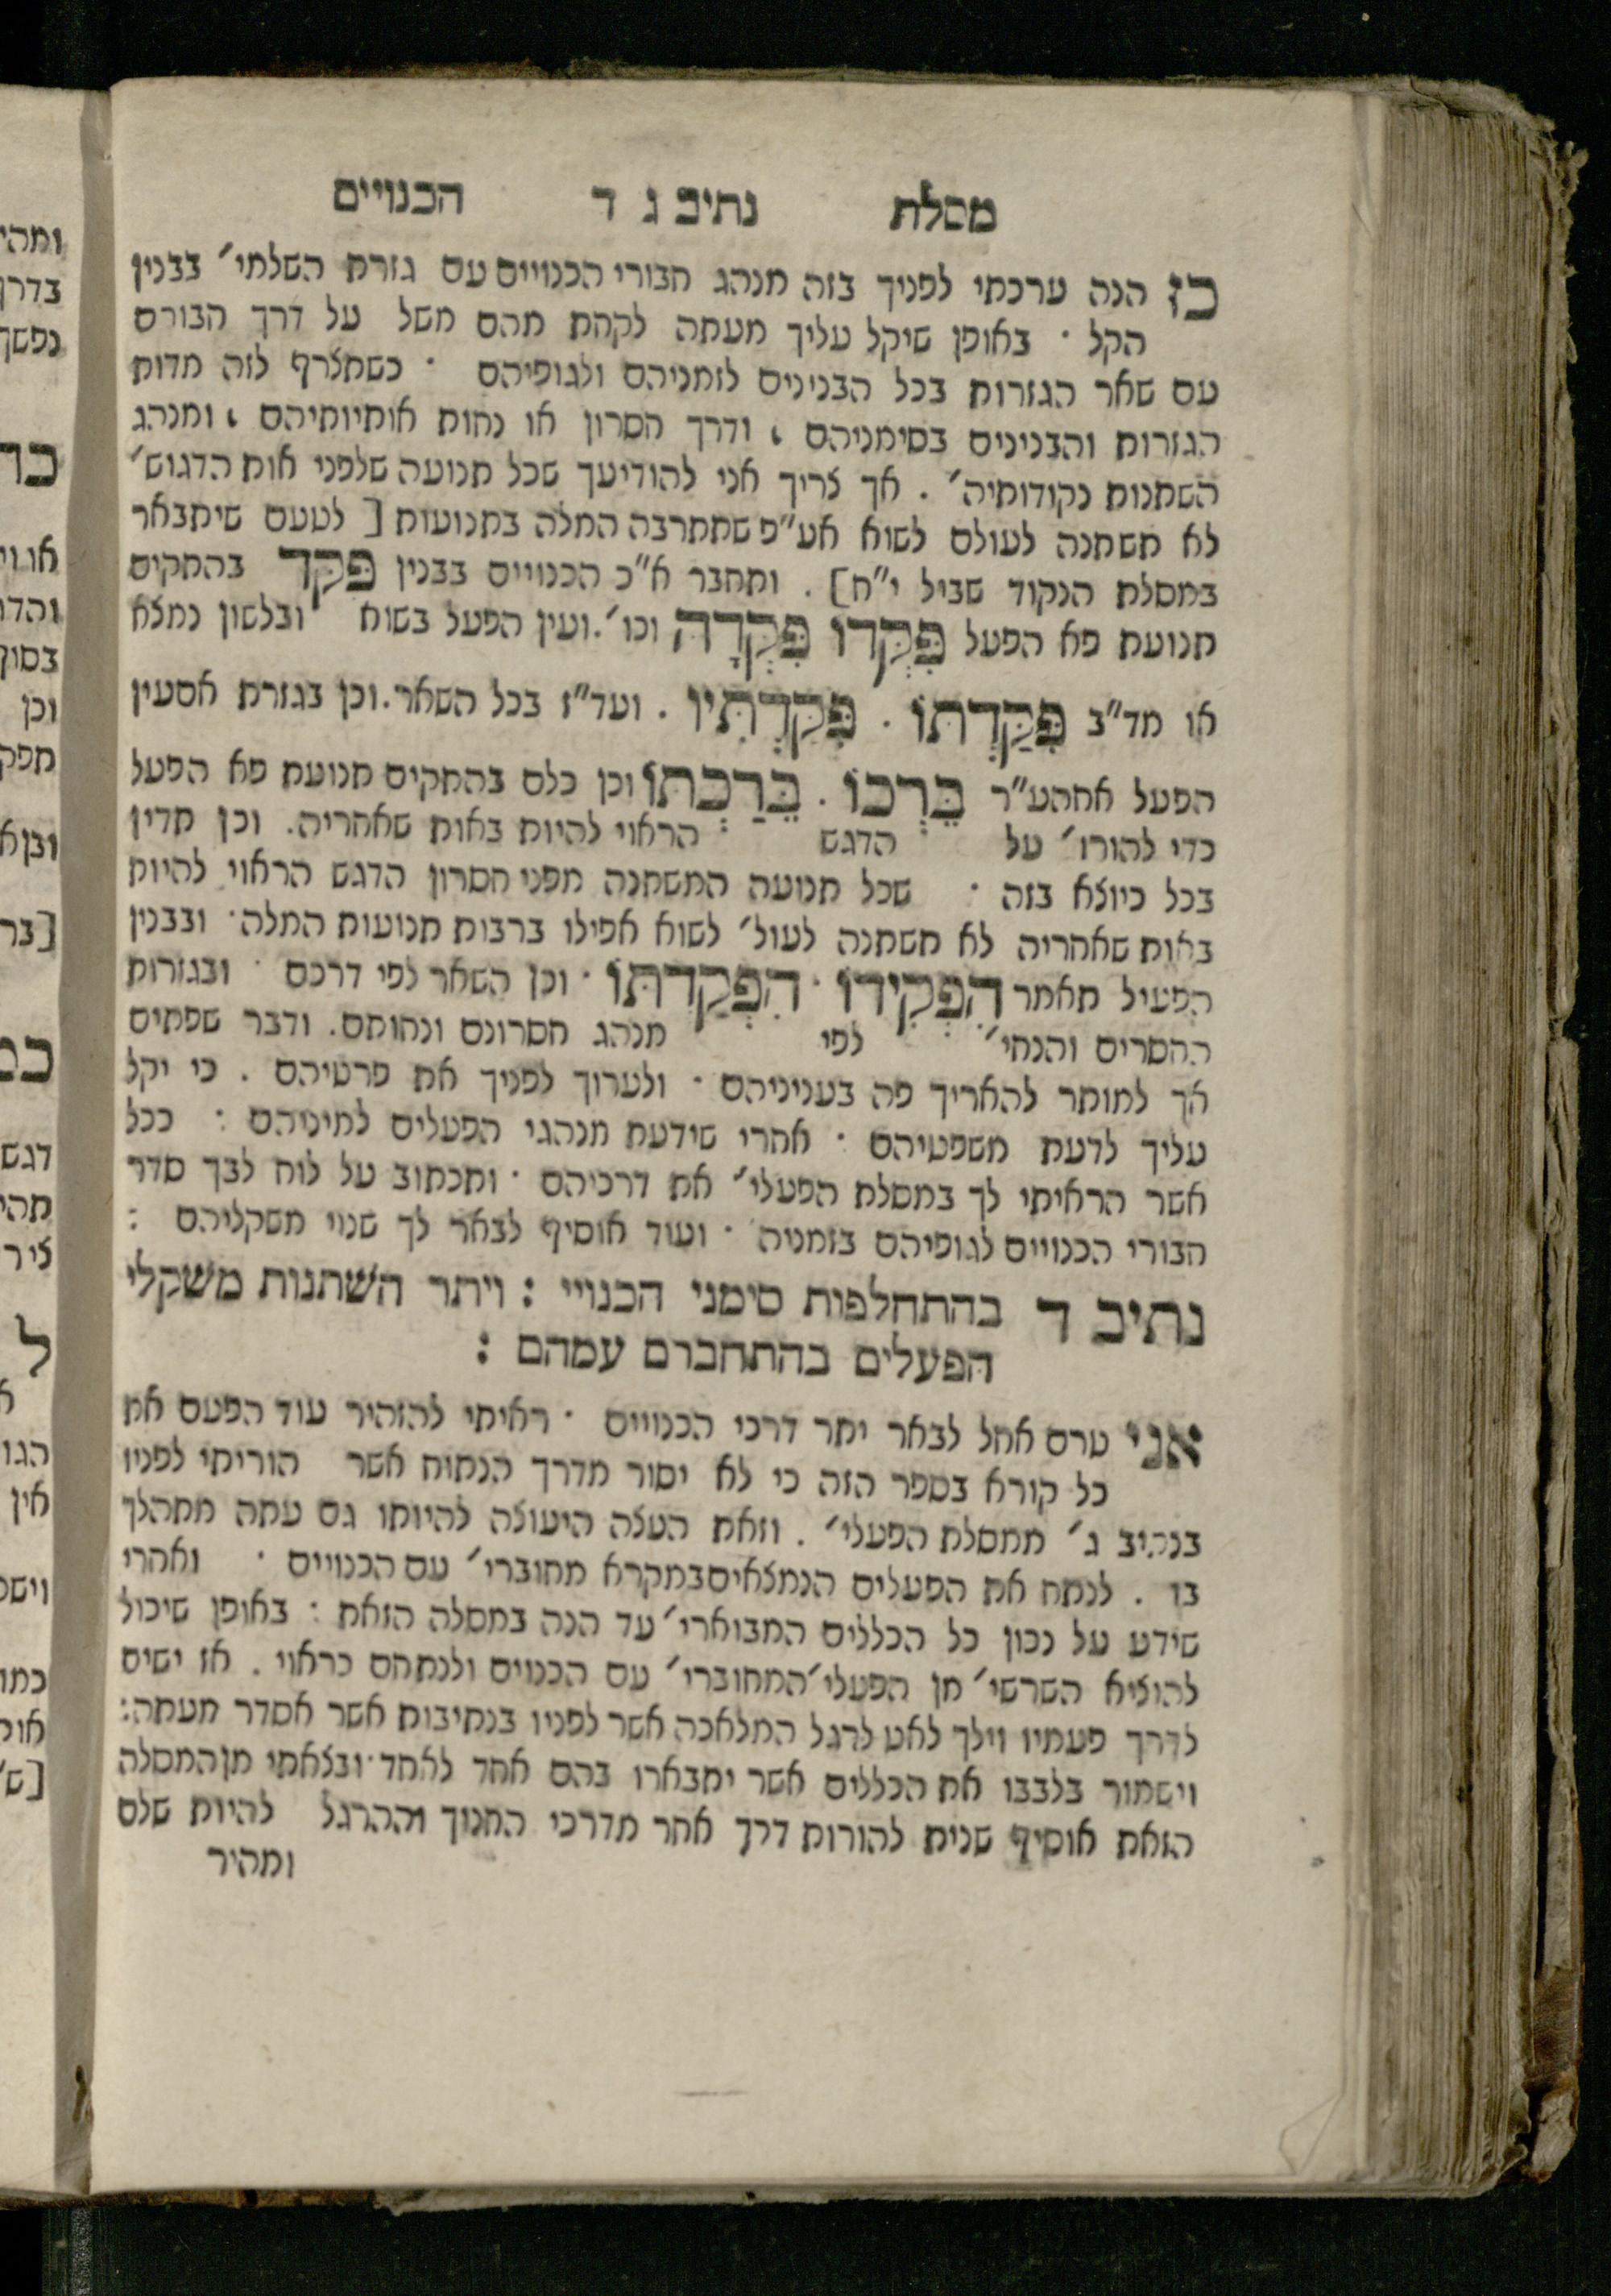 מסלת נתיב ג ד הכנויים
כז הנה ערכתי לפניך בזה מנהג חבורי הכנויים עם גזרת השלמי׳ בבנין
הקל · באופן שיקל עליך מעתה לקחת מהם משל על דרך חבורם
עם שאר הגזרות בכל הבנינים לזמניהם ולגופיהם · כשתצרף לזה מדות
הגזרות והבנינים בסימניהם , ודרך חסרון או נחות אותיותיהם , ומנהג
השתנות נקודותיה׳ . אך צריך אני להודיעך שכל תנועה שלפני אות הדגוש׳
לא תשתנה לעולם לשוא אע״פ שתתרבה המלה בתנועות [ לטעם שיתבאר
במסלת הנקוד שביל י״ח] . ותחבר א״כ הכנויים בבנין פִּקֵּד בהתקיים
תנועת פא הפעל פִּקְּדוֹ פִּקְּדָהּ וכו׳.ועין הפעל בשוא ובלשון נמצא
או מד״ב פִּקַּדְתּוֹ · פִּקַּדְתִּיו . ועד״ז בכל השאר.וכן בגזרת אסעין
הפעל אחהע״ר בֵּרְכוֹ . בֵּרַכְתּוֹ וכן כלם בהתקיים תנועת פא הפעל
כדי להורו׳ על הדגש הראוי להיות באות שאחריה. וכן תדין
בכל כיוצא בזה · שכל תנועה המשתנה מפני חסרון הדגש הראוי להיות
באות שאחריה לא תשתנה לעול׳ לשוא אפילו ברבות תנועות המלה· ובבנין
הפעיל תאמר הִפְקִידוֹ · הִפְקַדְתּוֹ · וכן השאר לפי דרכם · ובגזרות
החסרים והנחי׳ לפי מנהג חסרונם ונחותם. ודבר שפתים
אך למותר להאריך פה בעניניהם · ולערוך לפניך את פרטיהם . כי יקל
עליך לדעת משפטיהם · אחרי שידעת מנהגי הפעלים למיניהם : ככל
אשר הראיתי לך במסלת הפעלי׳ את דרכיהם · ותכתוב על לוח לבך סדר
חבורי הכנויים לגופיהם בזמניה׳ · ועוד אוסיף לבאר לך שנוי משקליהם :
נתיב ד בהתחלפות סימני הכנויי : ויתר השתנות משקלי
הפעלים בהתחברם עמהם :
אני טרם אחל לבאר יתר דרכי הכנויים · ראיתי להזהיר עוד הפעם את
כל קורא בספר הזה כי לא יסור מדרך הנתוח אשר הוריתי לפניו
בנתיב ג׳ ממסלת הפעלי׳ . וזאת העצה היעוצה להיותו גם עתה מתהלך
בו . לנתח את הפעלים הנמצאים במקרא מחוברי׳ עם הכנויים · ואחרי
שידע על נכון כל הכללים המבוארי׳ עד הנה במסלה הזאת : באופן שיכול
להוציא השרשי׳ מן הפעלי׳ המחוברי׳ עם הכנוים ולנתחם כראוי . אז ישים
לדרך פעמיו וילך לאט לרגל המלאכה אשר לפניו בנתיבות אשר אסדר מעתה:
וישמור בלבבו את הכללים אשר יתבארו בהם אחד לאחד·ובצאתי מן המסלה
הזאת אוסיף שנית להורות דרך אחר מדרכי החנוך וההרגל להיות שלם
ומהיר